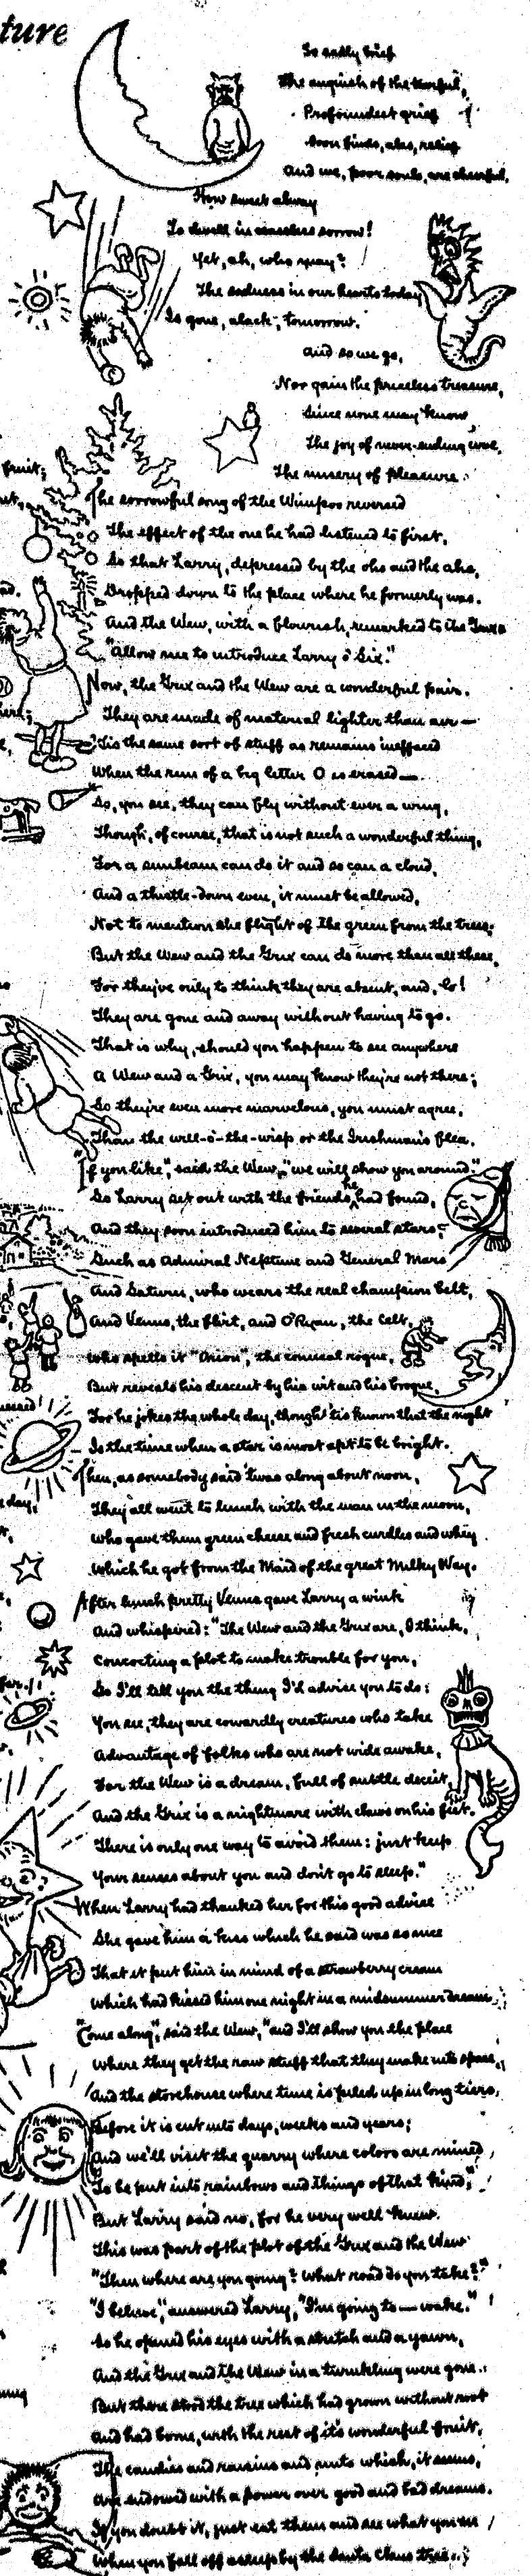 ture
So sadly brief
The anguish of the tearful,
Profoundest grief
Soon finds, alas, relief
And we, poor souls, are cheerful.
How sweet alway
To dwell in ceaseless sorrow!
Yet, ah, who may?
The sadness in our hearts today
Is gone, alack, tomorrow.
And so we go,
Nor gain the priceless treasure,
Since none may know
The joy of never-ending woe,
The misery of pleasure.
fruit;
The sorrowful song of the Wimpoo reversed
The effect of the one he had listened to first,
So that Larry, depressed by the ohs and the ahs,
Dropped down to the place where he formerly was.
And the Wew, with a flourish, remarked to the Grux
"Allow me to introduce Larry o' Six."
Now, the Grux and the Wew are a wonderful pair.
They are made of material lighter than air—
'Tis the same sort of stuff as remains ineffaced
When the rim of a big letter O is erased—
So, you see, they can fly without ever a wing,
Though, of course, that is not such a wonderful thing,
For a sunbeam can do it and so can a cloud,
And a thistle-down even, it must be allowed,
Not to mention the flight of the green from the trees;
But the Wew and the Grux can do more than all these,
For they've only to think they are absent, and, lo!
They are gone and away without having to go.
That is why, should you happen to see anywhere
A Wew and a Grux, you may know they're not there;
So they're even more marvelous, you must agree,
Than the will-o'-the-wisp or the Irishman's flea.
"If you like," said the Wew, "we will show you around."
So Larry set out with the friends he had found,
And they soon introduced him to several stars,
Such as Admiral Neptune and General Mars
And Saturn, who wears the real champion belt,
And Venus, the flirt, and O'Ryan, the Celt,
Who spells it "Orion", the comical rogue,
But reveals his descent by his wit and his brogue,
For he jokes the whole day, though 'tis known that the night
Is the time when a star is most apt to be bright.
Then, as somebody said 'twas along about noon,
day,
They all went to lunch with the man in the moon,
Who gave them green cheese and fresh curdles and whey
Which he got from the Maid of the great Milky Way.
After lunch pretty Venus gave Larry a wink
And whispered: "The Wew and the Grux are, I think,
Concocting a plot to make trouble for you,
So I'll tell you the thing I'd advise you to do:
You see, they are cowardly creatures who take
Advantage of folks who are not wide awake,
For the Wew is a dream, full of subtle deceit,
And the Grux is a nightmare with claws on his feet.
There is only one way to avoid them: just keep
Your senses about you and don't go to sleep."
When Larry had thanked her for this good advice
She gave him a kiss which he said was as nice
That it put him in mind of a strawberry cream
Which had kissed him one night in a midsummer dream.
"Come along", said the Wew, "and I'll show you the place
Where they get the raw stuff that they make into space,
And the storehouse where time is piled up in long tiers,
Before it is cut into days, weeks and years;
And we'll visit the quarry where colors are mined
To be put into rainbows and things of that kind;"
But Larry said no, for he very well knew
This was part of the plot of the Grux and the Wew
"Then where are you going? What road do you take?"
"I believe," answered Larry, "I'm going to—wake."
So he opened his eyes with a stretch and a yawn,
And the Grux and the Wew in a twinkling were gone.
But there stood the tree which had grown without root
And had borne, with the rest of its wonderful fruit,
The candies and raisins and nuts which, it seems,
Are endowed with a power over good and bad dreams.
If you doubt it, just eat them and see what you see
When you fall off asleep by the Santa Claus tree.